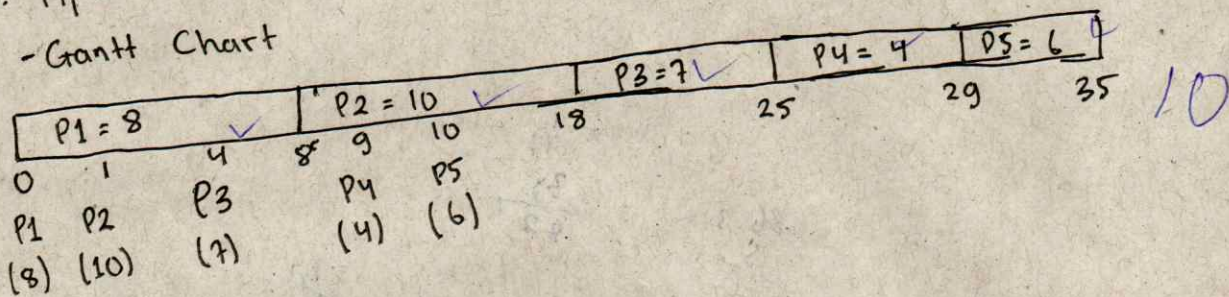 - Gantt Chart
P1 = 8 P2 = 10 P3 = 7 P4 = 4 P5 = 6
0 1 4 8 9 10 18 25 29 35
P1 P2 P3 P4 P5
(8) (10) (7) (4) (6)
10